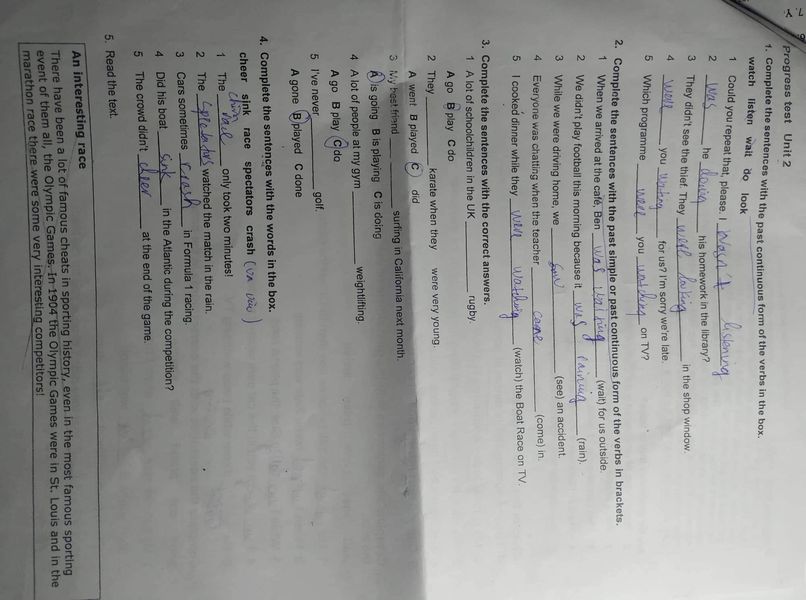 Progress test Unit 2
1. Complete the sentences with the past continuous form of the verbs in the box.
watch listen wait do look
1 Could you repeat that, please. I wasn't listening
2 was he doing his homework in the library?
3 They didn't see the thief. They were looking in the shop window.
4 were you waiting for us? I'm sorry we're late.
5 Which programme were you watching on TV?
2. Complete the sentences with the past simple or past continuous form of the verbs in brackets.
1 When we arrived at the café, Ben was waiting (wait) for us outside.
2 We didn't play football this morning because it was raining (rain).
3 While we were driving home, we saw (see) an accident.
4 Everyone was chatting when the teacher came (come) in.
5 I cooked dinner while they were watching (watch) the Boat Race on TV.
3. Complete the sentences with the correct answers.
1 A lot of schoolchildren in the UK ______ rugby.
A go B play C do
2 They ______ karate when they were very young.
A went B played C did
3 My best friend ______ surfing in California next month.
A is going B is playing C is doing
4 A lot of people at my gym ______ weightlifting.
A go B play C do
5 I've never ______ golf.
A gone B played C done
4. Complete the sentences with the words in the box.
cheer sink race spectators crash
1 The race only took two minutes!
2 The spectators watched the match in the rain.
3 Cars sometimes crash in Formula 1 racing.
4 Did his boat sink in the Atlantic during the competition?
5 The crowd didn't cheer at the end of the game.
5. Read the text.
An interesting race
There have been a lot of famous cheats in sporting history, even in the most famous sporting
event of them all, the Olympic Games. In 1904 the Olympic Games were in St. Louis and in the
marathon race there were some very interesting competitors!